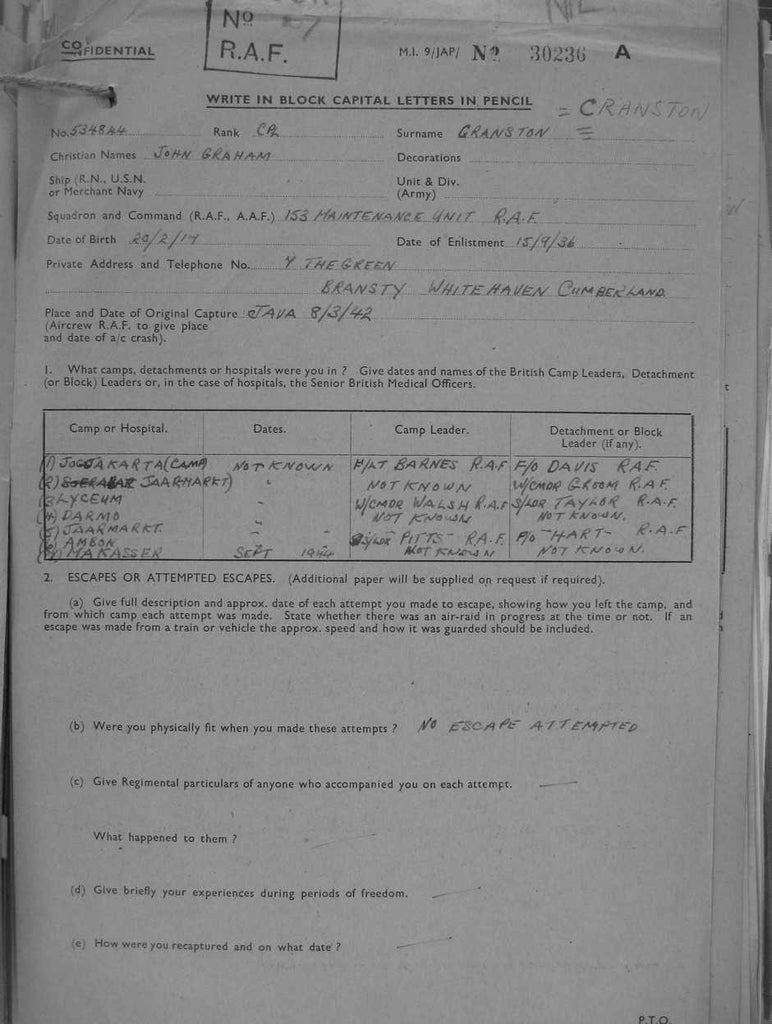 Nº 7
R.A.F.
CONFIDENTIAL
M.I. 9/JAP/ Nº 30236 A
WRITE IN BLOCK CAPITAL LETTERS IN PENCIL
= CRANSTON
No. 534844 Rank CPL Surname CRANSTON =
Christian Names JOHN GRAHAM Decorations
Ship (R.N., U.S.N. or Merchant Navy Unit & Div. (Army)
Squadron and Command (R.A.F., A.A.F.) 153 MAINTENANCE UNIT R.A.F.
Date of Birth 29/2/17 Date of Enlistment 15/9/36
Private Address and Telephone No. 4 THE GREEN
BRANSTY WHITEHAVEN CUMBERLAND
Place and Date of Original Capture JAVA 8/3/42
(Aircrew R.A.F. to give place
and date of a/c crash).
1. What camps, detachments or hospitals were you in ? Give dates and names of the British Camp Leaders, Detachment
(or Block) Leaders or, in the case of hospitals, the Senior British Medical Officers.
Camp or Hospital. Dates. Camp Leader. Detachment or Block Leader (if any).
(1) JOGJAKARTA (CAMP) NOT KNOWN F/LT BARNES R.A.F F/O DAVIS RAF.
(2) JAARMARKT) " NOT KNOWN W/CMDR GROOM R.A.F.
(3 LYCEUM " W/CMDR WALSH R.A.F S/LDR TAYLOR R.A.F.
(4) DARMO " NOT KNOWN NOT KNOWN.
(5) JAARMARKT. "
(6) AMBON " S/LDR PITTS R.A.F. F/O HART R.A.F
(7) MAKASSER SEPT 1944 NOT KNOWN NOT KNOWN.
2. ESCAPES OR ATTEMPTED ESCAPES. (Additional paper will be supplied on request if required).
(a) Give full description and approx. date of each attempt you made to escape, showing how you left the camp, and
from which camp each attempt was made. State whether there was an air-raid in progress at the time or not. If an
escape was made from a train or vehicle the approx. speed and how it was guarded should be included.
(b) Were you physically fit when you made these attempts ? NO ESCAPE ATTEMPTED
(c) Give Regimental particulars of anyone who accompanied you on each attempt. —
What happened to them ? —
(d) Give briefly your experiences during periods of freedom. —
(e) How were you recaptured and on what date ? —
P.T.O.